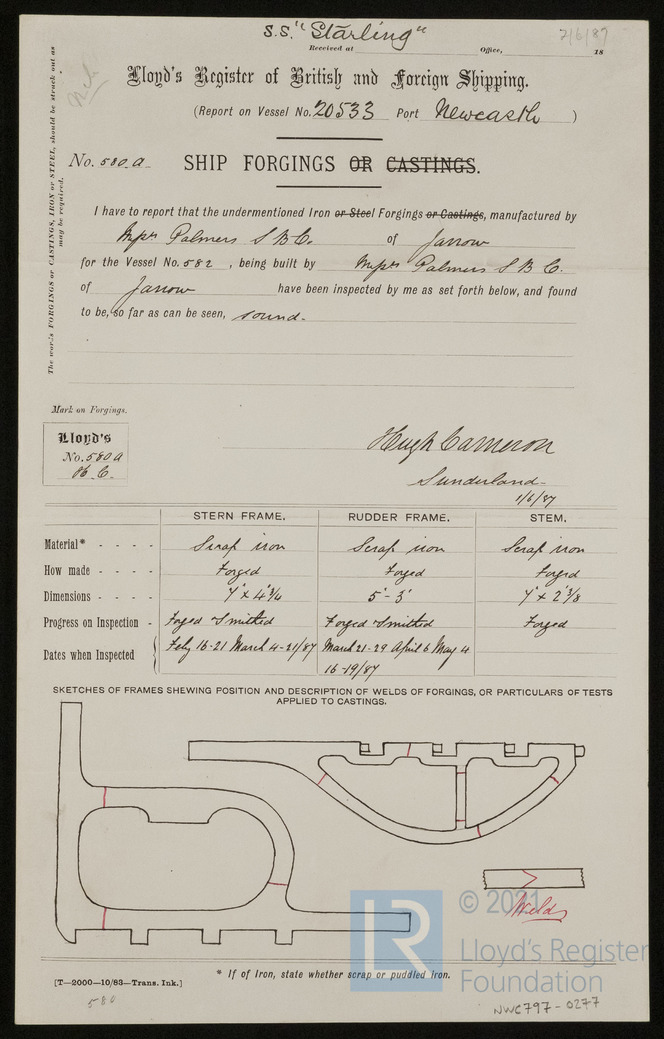 S.S. "Starling"
7/6/87
Received at Office, 18
Lloyd's Register of British and Foreign Shipping.
(Report on Vessel No. 20533 Port Newcastle )
No. 580.a. SHIP FORGINGS OR CASTINGS.
The words FORGINGS or CASTINGS, IRON or STEEL, should be struck out as
may be required.
I have to report that the undermentioned Iron or Steel Forgings or Castings, manufactured by
Messrs Palmers S B C. of Jarrow
for the Vessel No. 582 , being built by Messrs Palmers S B C.
of Jarrow have been inspected by me as set forth below, and found
to be, so far as can be seen, sound.
Mark on Forgings.
Lloyd's
No. 580a
H. C.
Hugh Cameron
Sunderland
1/6/87
STERN FRAME. RUDDER FRAME. STEM.
Material* - - - - Scrap iron Scrap iron Scrap iron
How made - - - - Forged Forged Forged
Dimensions - - - 7" x 4 3/4 5" - 3" 7" x 2 3/8
Progress on Inspection - Forged & Smithed Forged & Smithed Forged
Dates when Inspected Feby 16-21 March 4-21/87 March 21-29 April 6 May 4
16-19/87
SKETCHES OF FRAMES SHEWING POSITION AND DESCRIPTION OF WELDS OF FORGINGS, OR PARTICULARS OF TESTS
APPLIED TO CASTINGS.
Welds
© 2021
LR
Lloyd's Register
Foundation
* If of Iron, state whether scrap or puddled iron.
[T—2000—10/83—Trans. Ink.]
580
NWC797-0277